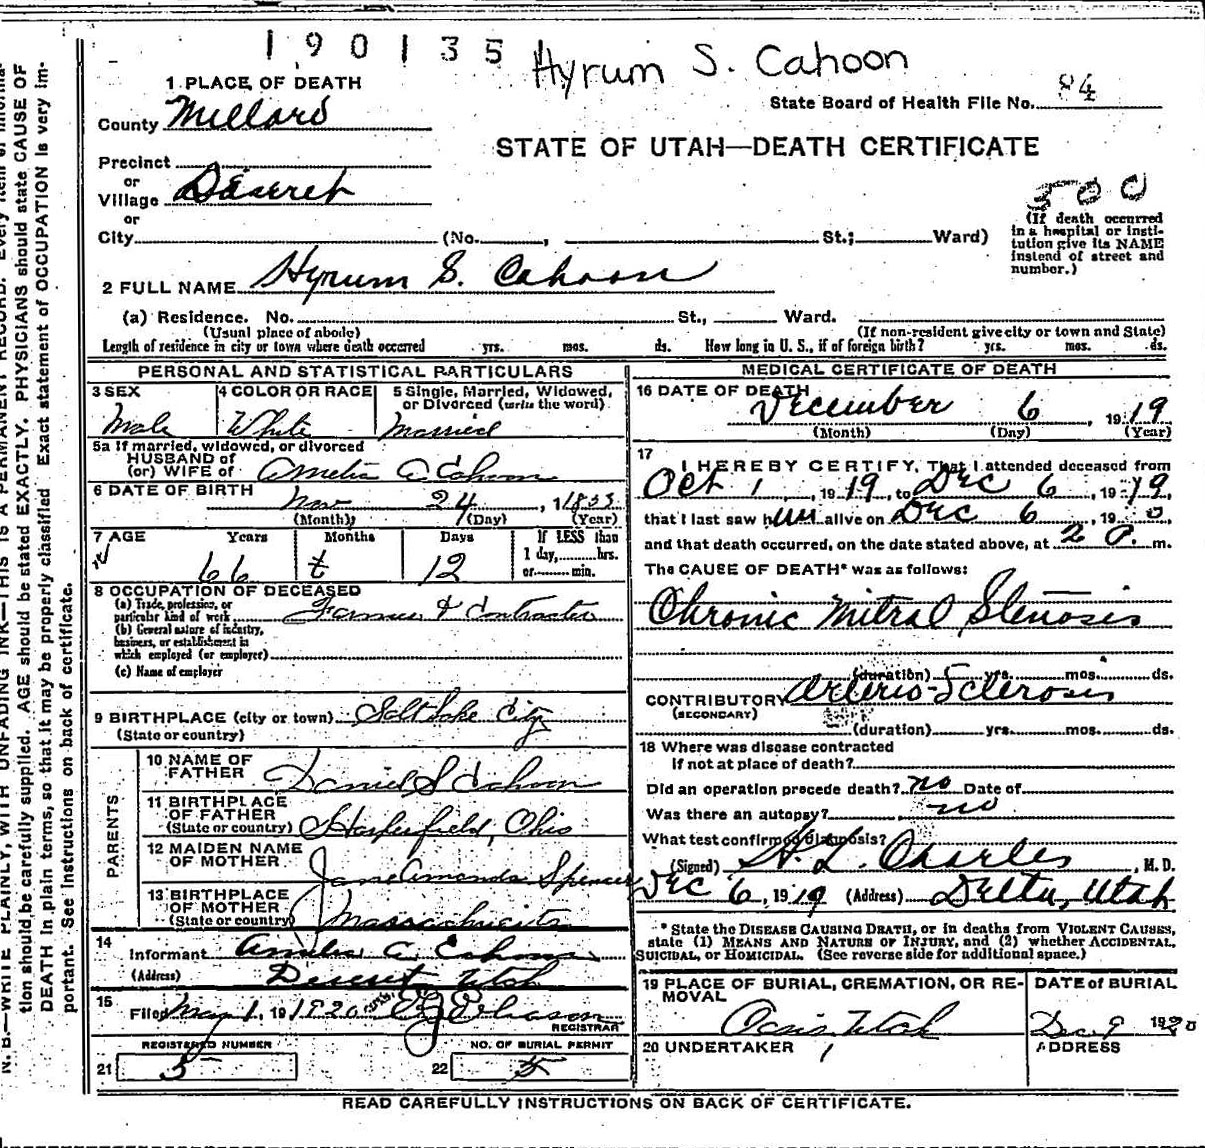 190135 Hyrum S. Cahoon
1 PLACE OF DEATH
State Board of Health File No. 84
County Millard
STATE OF UTAH—DEATH CERTIFICATE
Precinct
or
Village Deseret
500
or
City (No. , St.; Ward)
(If death occurred
in a hospital or insti-
tution give its NAME
instead of street and
number.)
2 FULL NAME Hyrum S. Cahoon
(a) Residence. No. St., Ward.
(Usual place of abode) (If non-resident give city or town and State)
Length of residence in city or town where death occurred yrs. mos. ds. How long in U. S., if of foreign birth? yrs. mos. ds.
PERSONAL AND STATISTICAL PARTICULARS
3 SEX 4 COLOR OR RACE 5 Single, Married, Widowed,
or Divorced (write the word)
Male White Married
5a If married, widowed, or divorced
HUSBAND of
(or) WIFE of Amelia A Cahoon
6 DATE OF BIRTH
Nov 24, 1
(Month) (Day) (Year)
7 AGE Years Months Days If LESS than
1 day, hrs.
or min.
66 12
8 OCCUPATION OF DECEASED
(a) Trade, profession, or
particular kind of work Farmer & Contractor
(b) General nature of industry,
business, or establishment in
which employed (or employer)
(c) Name of employer
9 BIRTHPLACE (city or town) Salt Lake City
(State or country)
PARENTS
10 NAME OF
FATHER Daniel S Cahoon
11 BIRTHPLACE
OF FATHER
(State or country) Harperfield, Ohio
12 MAIDEN NAME
OF MOTHER Jane Amanda Spencer
13 BIRTHPLACE
OF MOTHER
(State or country) Massachusetts
14
Informant Amelia A Cahoon
(Address) Deseret Utah
15
Filed May 1, 19 1920
REGISTRAR
REGISTERED NUMBER NO. OF BURIAL PERMIT
21 5 22 5
MEDICAL CERTIFICATE OF DEATH
16 DATE OF DEATH
December 6, 1919
(Month) (Day) (Year)
17
I HEREBY CERTIFY, That I attended deceased from
Oct 1, 1919, to Dec 6, 1919,
that I last saw him alive on Dec 6, 19
and that death occurred, on the date stated above, at 2 P. m.
The CAUSE OF DEATH* was as follows:
Chronic Mitral Stenosis
(duration) yrs. mos. ds.
CONTRIBUTORY Arterio-Sclerosis
(SECONDARY)
(duration) yrs. mos. ds.
18 Where was disease contracted
If not at place of death?
Did an operation precede death? no Date of
Was there an autopsy? no
What test confirmed diagnosis?
(Signed) H. L. Charles, M. D.
Dec 6, 1919 (Address) Delta, Utah
* State the DISEASE CAUSING DEATH, or in deaths from VIOLENT CAUSES,
state (1) MEANS AND NATURE OF INJURY, and (2) whether ACCIDENTAL,
SUICIDAL, or HOMICIDAL. (See reverse side for additional space.)
19 PLACE OF BURIAL, CREMATION, OR RE-
MOVAL
DATE of BURIAL
Oasis, Utah Dec. 9 1920
20 UNDERTAKER ADDRESS
READ CAREFULLY INSTRUCTIONS ON BACK OF CERTIFICATE.
N. B.—WRITE PLAINLY, WITH UNFADING INK—THIS IS A PERMANENT RECORD. Every item of informa-
tion should be carefully supplied. AGE should be stated EXACTLY. PHYSICIANS should state CAUSE OF
DEATH in plain terms, so that it may be properly classified. Exact statement of OCCUPATION is very im-
portant. See instructions on back of certificate.